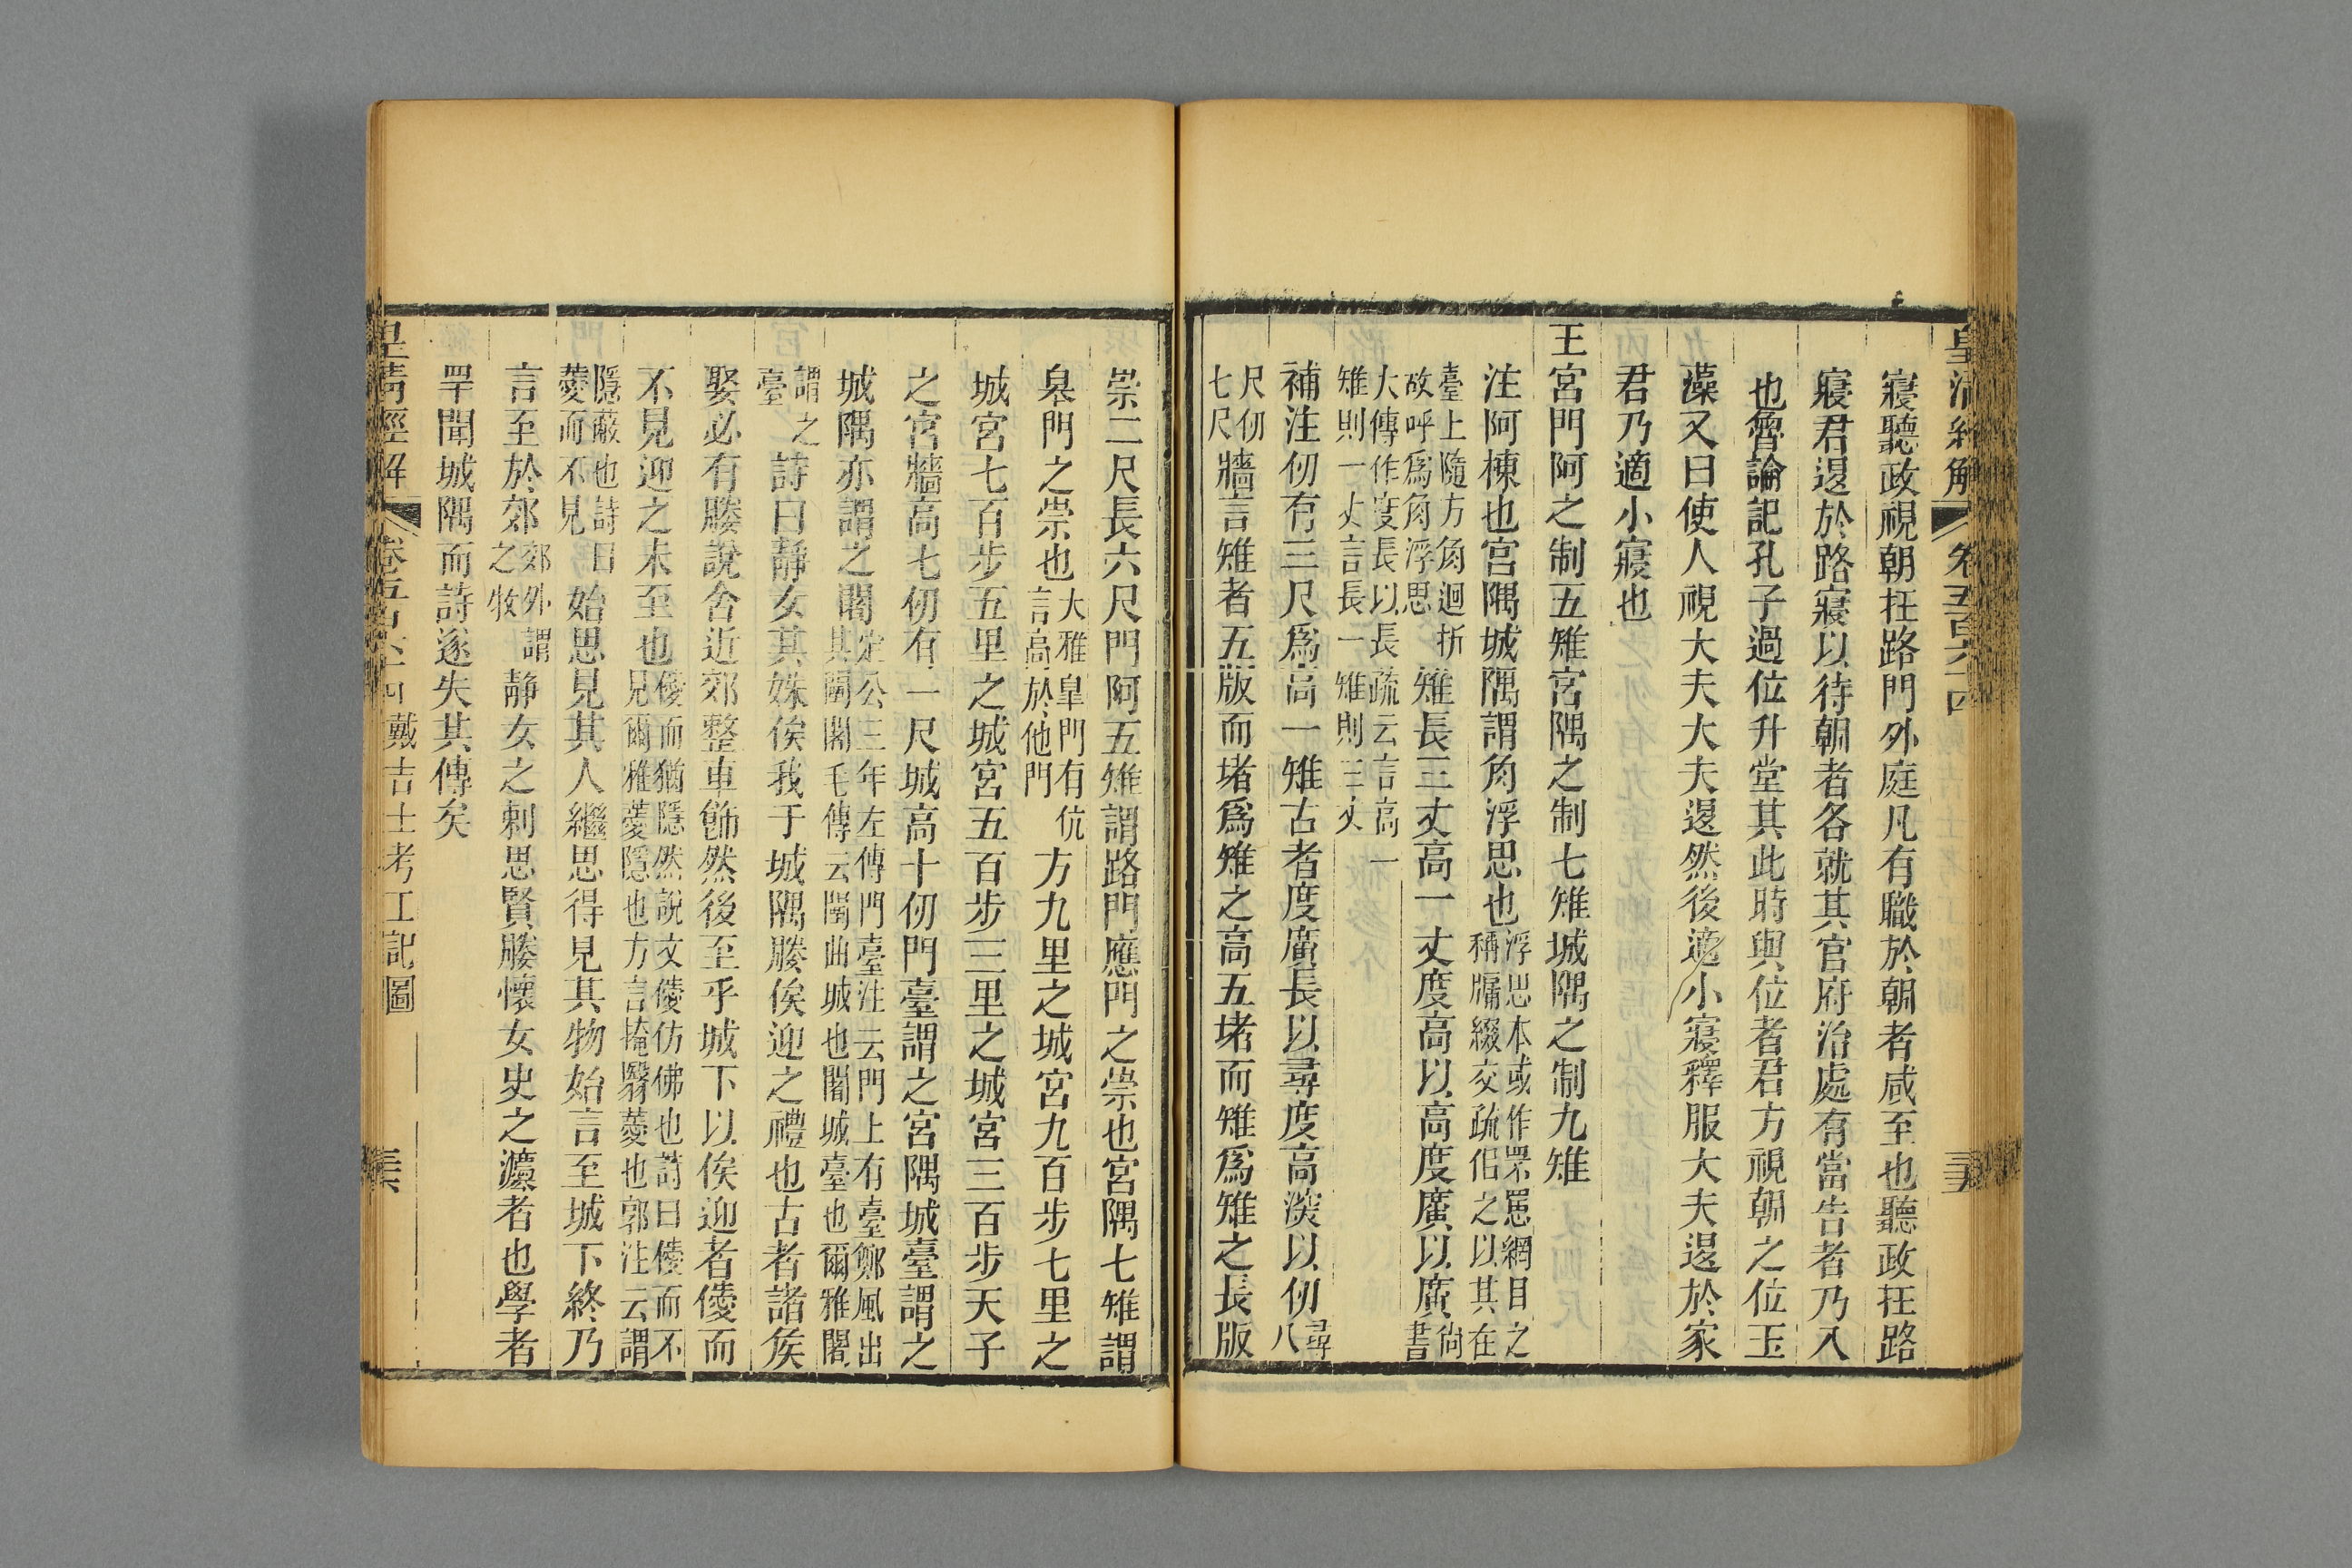 皇清經解 卷五百六十四
寢聽政視朝在路門外庭凡有職於朝者咸至也聽政在路
寢君退於路寢以待朝者各就其官府治處有當告者乃入
也魯論記孔子過位升堂其此時與位者君方視朝之位玉
藻又曰使人視大夫大夫退然後適小寢釋服大夫退於家
君乃適小寢也
王宮門阿之制五雉宮隅之制七雉城隅之制九雉
注阿棟也宮隅城隅謂角浮思也浮思本或作罘罳網目之稱牖綴交疏佀之以其在
臺上隨方角迴折故呼爲角浮思雉長三丈高一丈度高以高度廣以廣尙書
大傳作度長以長疏云言高一雉則一丈言長一雉則三丈
補注仞有三尺爲高一雉古者度廣長以尋度高深以仞尋八
尺仞七尺牆言雉者五版而堵爲雉之高五堵而雉爲雉之長版
崇二尺長六尺門阿五雉謂路門應門之崇也宮隅七雉謂
皋門之崇也大雅皇門有伉言高於他門方九里之城宮九百步七里之
城宮七百步五里之城宮五百步三里之城宮三百步天子
之宮牆高七仞有一尺城高十仞門臺謂之宮隅城臺謂之
城隅亦謂之闍定公三年左傳門臺注云門上有臺鄭風出其闉闍毛傳云闉曲城也闍城臺也爾雅闍
謂之臺詩曰靜女其姝俟我于城隅媵俟迎之禮也古者諸矦
娶必有媵說舍近郊整車飾然後至乎城下以俟迎者僾而
不見迎之未至也僾而猶隱然說文僾仿佛也詩曰僾而不見爾雅薆隱也方言掩翳薆也郭注云謂
隱蔽也詩曰薆而不見始思見其人繼思得見其物始言至城下終乃
言至於郊郊外謂之牧靜女之刺思賢媵懷女史之灋者也學者
罕聞城隅而詩遂失其傳矣
皇清經解 卷五百六十四 戴吉士考工記圖